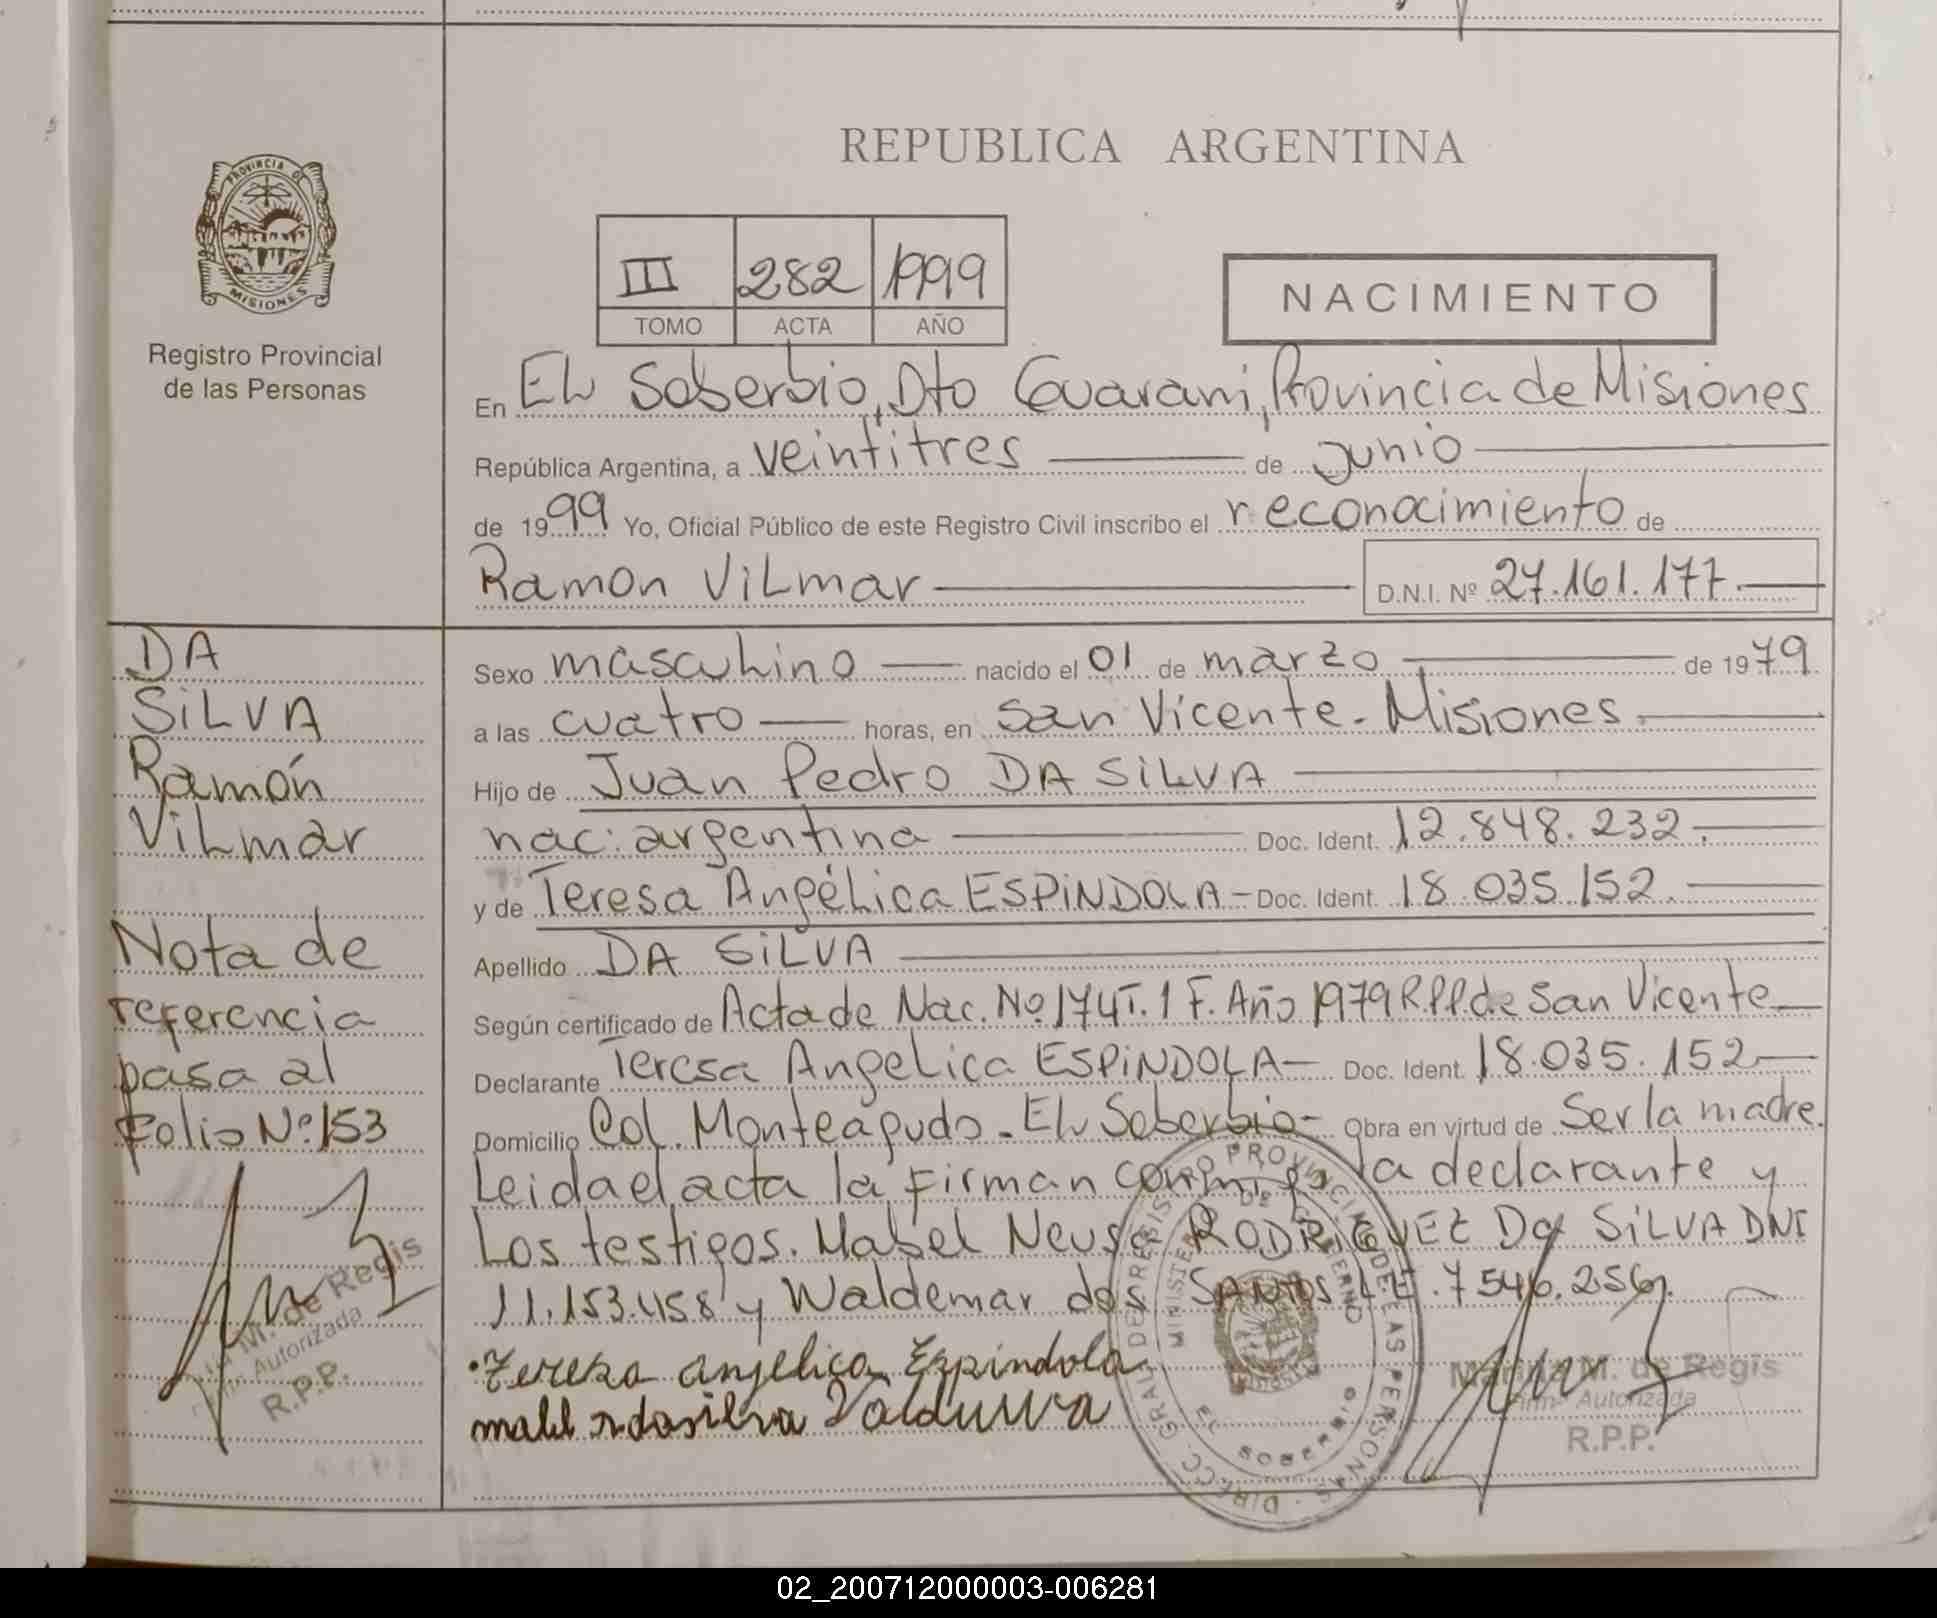 REPUBLICA ARGENTINA
PROVINCIA DE
MISIONES
Registro Provincial
de las Personas
III 282 1999
TOMO ACTA AÑO
NACIMIENTO
En EL Soberbio, Dto Guarani, Provincia de Misiones
República Argentina, a veintitres de junio
de 1999 Yo, Oficial Público de este Registro Civil inscribo el reconocimiento de
Ramon ViLmar D.N.I. Nº 27.161.177.
DA
SiLVA
Ramón
ViLmar
Nota de
referencia
pasa al
folio Nº 153
M. de Regis
Autorizada
R.P.P.
Sexo masculino nacido el 01 de marzo de 1979
a las cuatro horas, en San Vicente - Misiones.
Hijo de Juan Pedro DA SiLVA
nac: argentina Doc. Ident. 12.848.232.
y de Teresa AngéLica ESPiNDOLA - Doc. Ident. 18.035.152.
Apellido DA SiLVA
Según certificado de Acta de Nac. Nº 174 T. 1 F. Año 1979 R.P.P. de San Vicente
Declarante Teresa AngeLica ESPiNDOLA - Doc. Ident. 18.035.152
Domicilio Col. Monteagudo - EL Soberbio - Obra en virtud de Ser la madre.
Leida el acta la Firman conmigo la declarante y
Los testigos. Mabel Neusa RODRiGUEZ Da SiLVA DNI
11.153.458 y Waldemar dos SANTOS L.E. 7546.256.
Tereza anjelica Ezpindola
mabel r dasilva
DIRECC. GRAL DE REGISTRO PROVINCIAL DE LAS PERSONAS
MINISTERIO DE GOBIERNO
EL SOBERBIO
Marina M. de Regis
Firm. Autorizada
R.P.P.
02_200712000003-006281